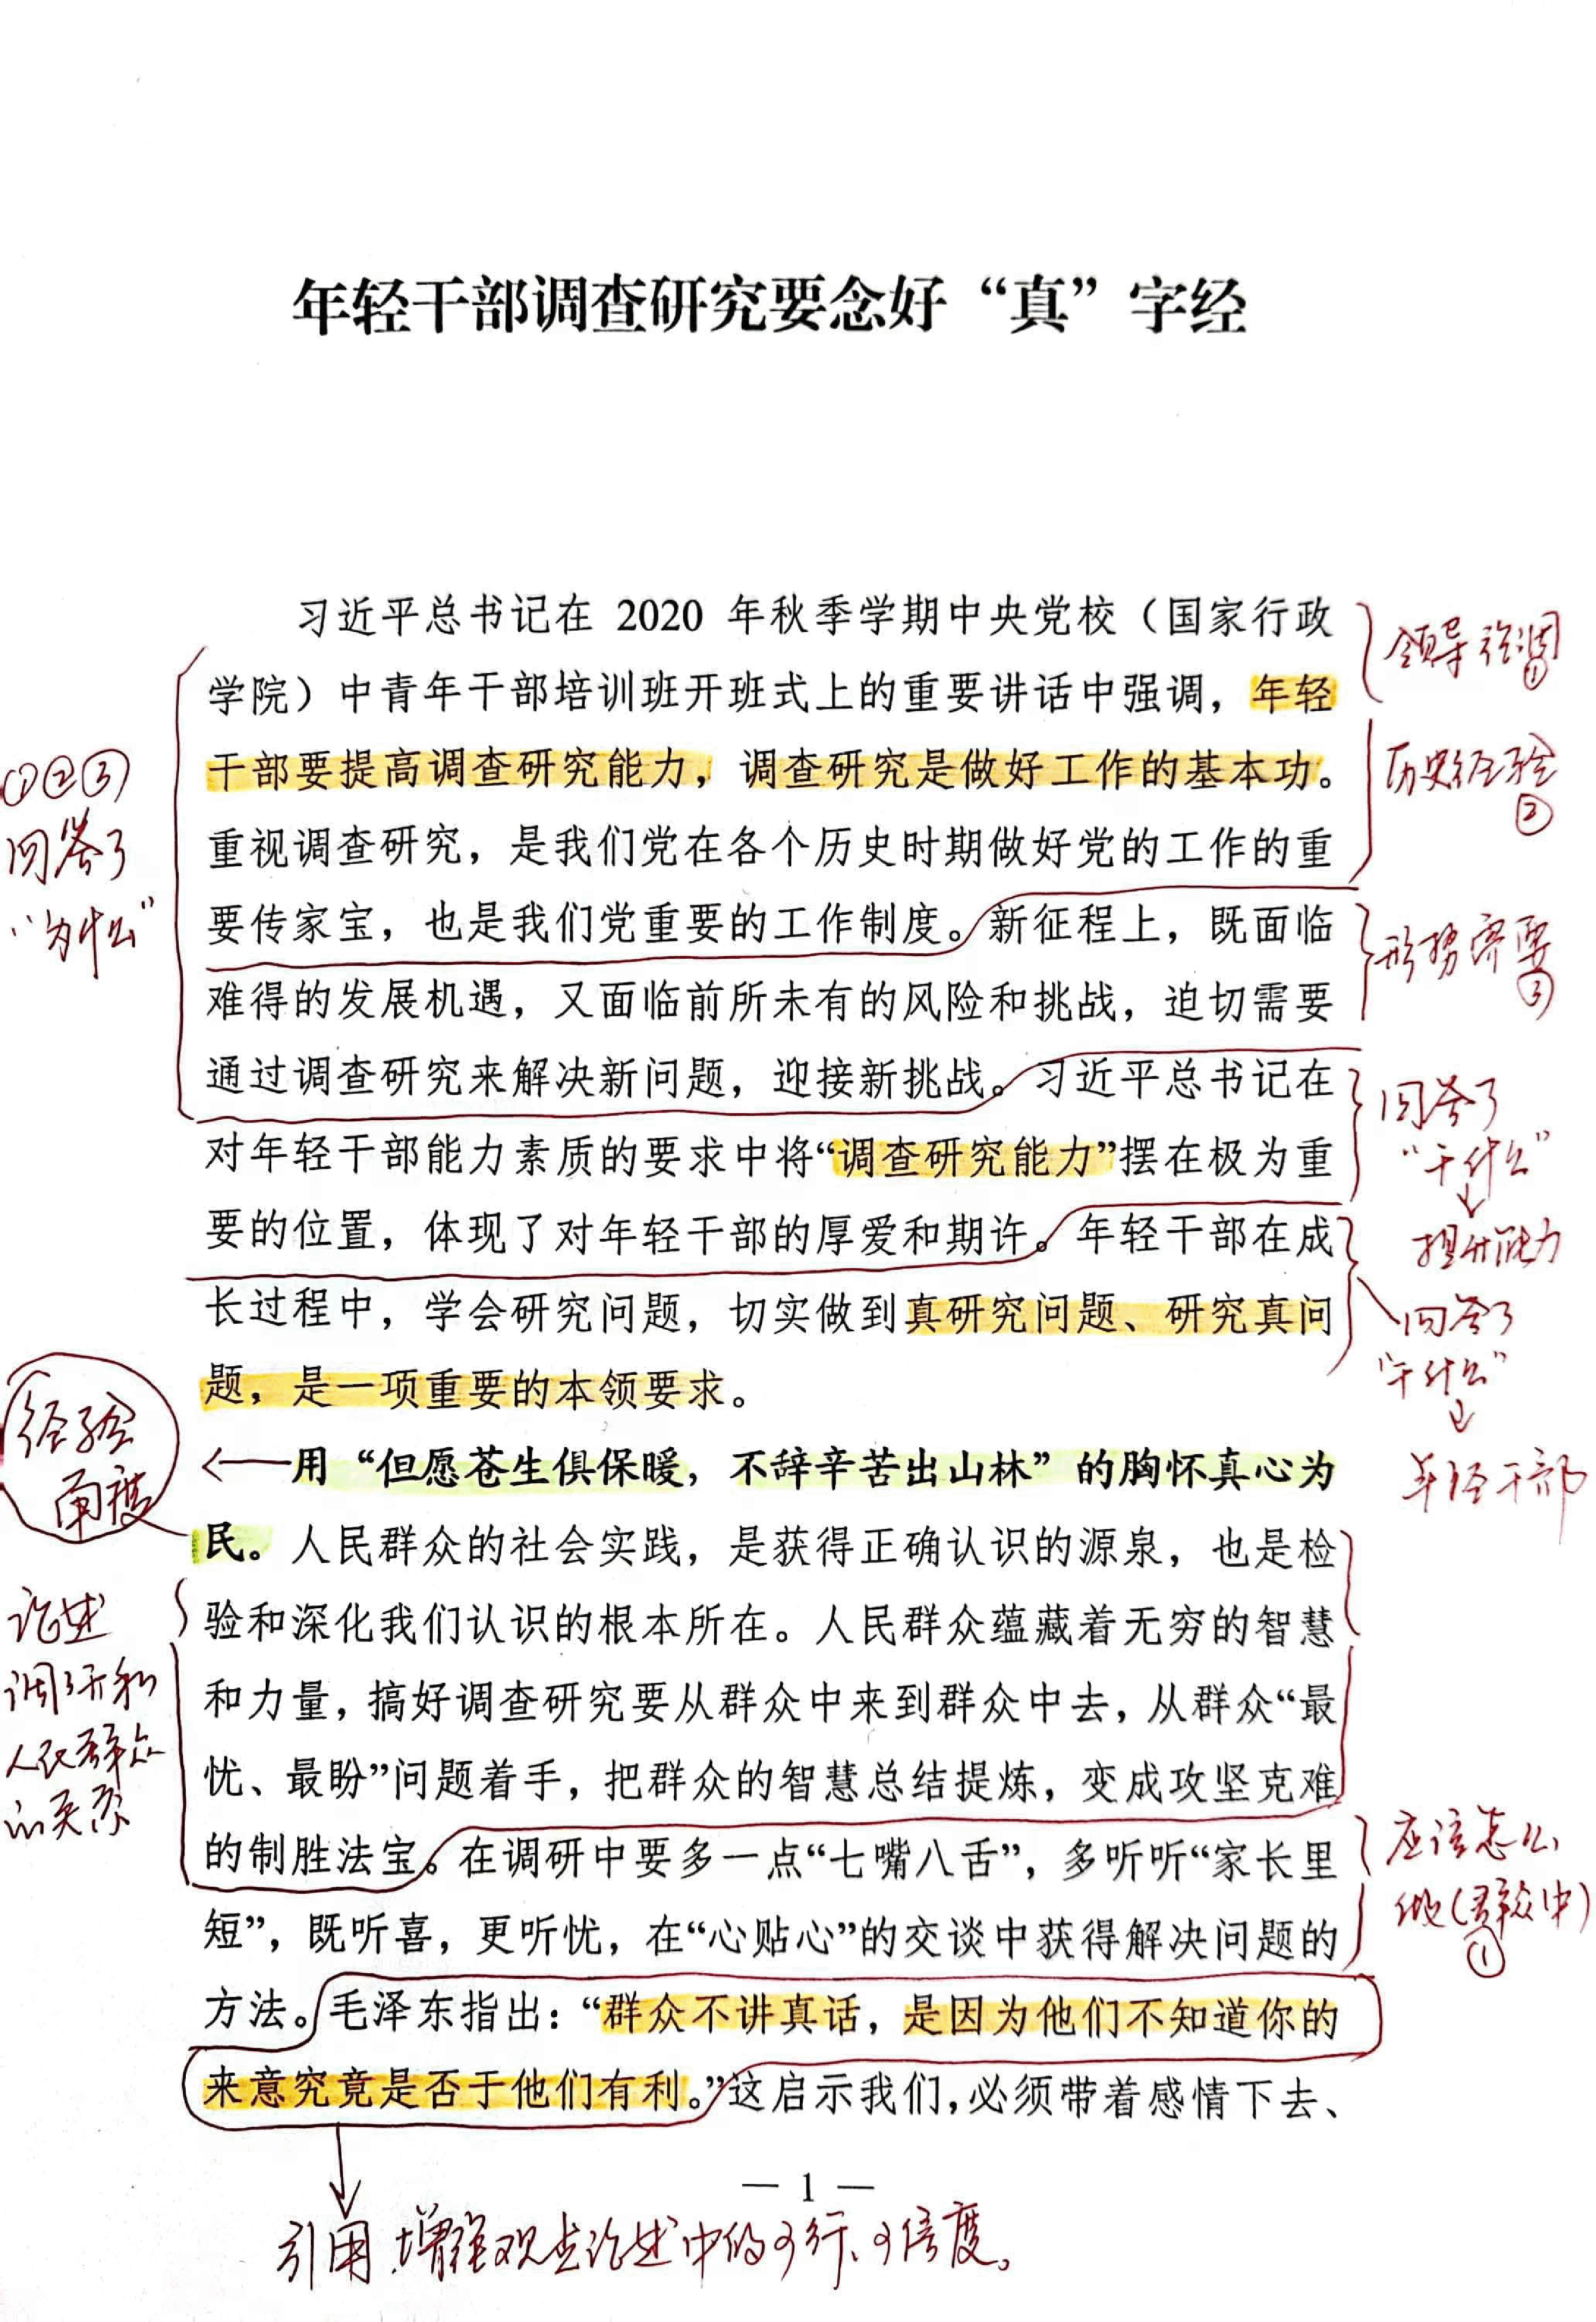 年轻干部调查研究要念好“真”字经
习近平总书记在 2020 年秋季学期中央党校（国家行政
学院）中青年干部培训班开班式上的重要讲话中强调，年轻
干部要提高调查研究能力，调查研究是做好工作的基本功。
重视调查研究，是我们党在各个历史时期做好党的工作的重
要传家宝，也是我们党重要的工作制度。新征程上，既面临
难得的发展机遇，又面临前所未有的风险和挑战，迫切需要
通过调查研究来解决新问题，迎接新挑战。习近平总书记在
对年轻干部能力素质的要求中将“调查研究能力”摆在极为重
要的位置，体现了对年轻干部的厚爱和期许。年轻干部在成
长过程中，学会研究问题，切实做到真研究问题、研究真问
题，是一项重要的本领要求。
用“但愿苍生俱保暖，不辞辛苦出山林”的胸怀真心为
民。人民群众的社会实践，是获得正确认识的源泉，也是检
验和深化我们认识的根本所在。人民群众蕴藏着无穷的智慧
和力量，搞好调查研究要从群众中来到群众中去，从群众“最
忧、最盼”问题着手，把群众的智慧总结提炼，变成攻坚克难
的制胜法宝。在调研中要多一点“七嘴八舌”，多听听“家长里
短”，既听喜，更听忧，在“心贴心”的交谈中获得解决问题的
方法。毛泽东指出：“群众不讲真话，是因为他们不知道你的
来意究竟是否于他们有利。”这启示我们，必须带着感情下去、
— 1 —
①②③
回答了
“为什么”
经验
角度
论述
调研和
人民群众
的关系
领导强调
①
历史经验
②
形势需要
③
回答了
“干什么”
提升能力
回答了
“干什么”
年轻干部
应该怎么
做（群众中）
①
引用，增强观点论述中的可行、可信度。